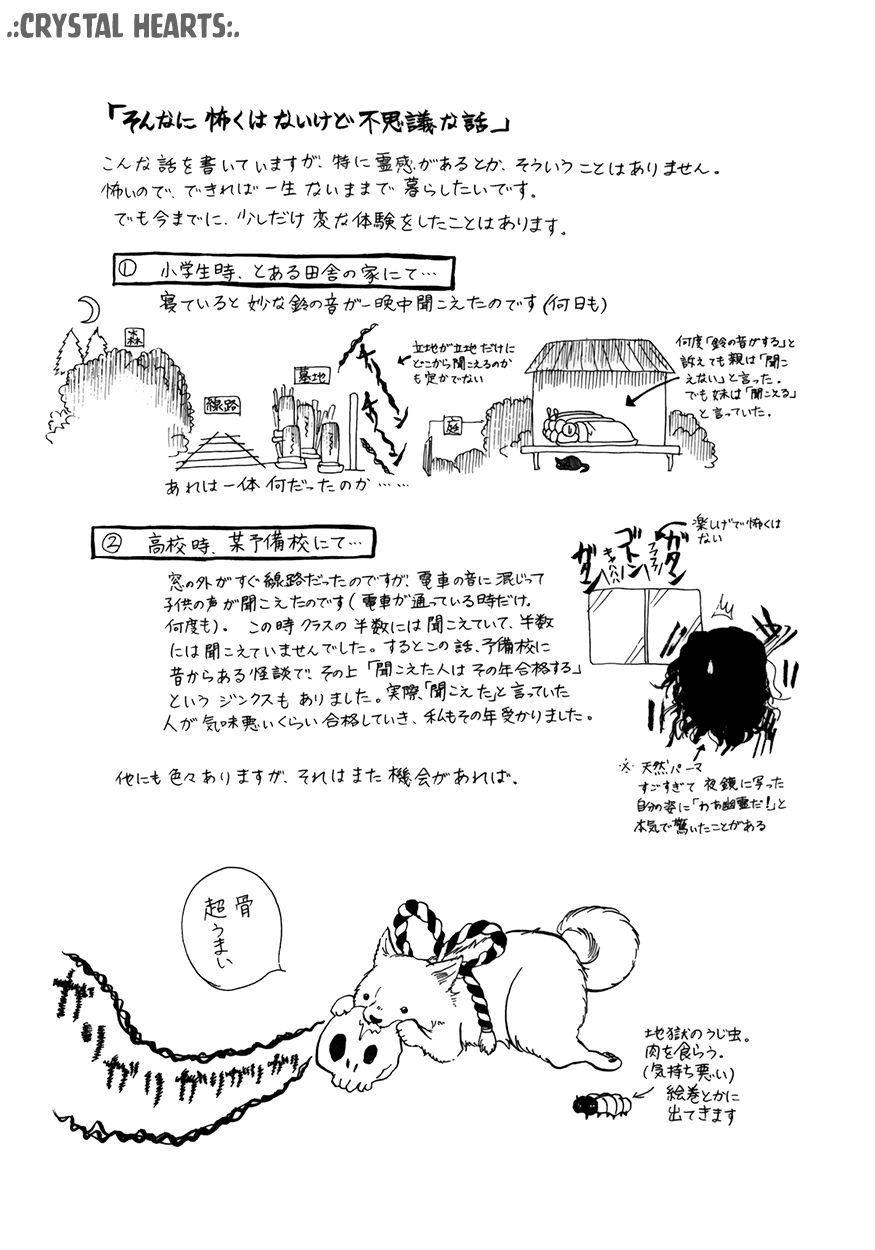 .:CRYSTAL HEARTS:.
「そんなに 怖くは ないけど 不思議な話」
こんな話を書いていますが、特に霊感があるとか、そういうことはありません。
怖いので、できれば一生 ないままで 暮らしたいです。
でも今までに、少しだけ 変な体験をしたことはあります。
① 小学生時、とある田舎の家にて…
寝ていると 妙な鈴の音が一晩中聞こえたのです(何日も)
森
線路
墓地
チリーン
チリーン
立地が立地だけに
どこから聞こえるのか
も定かでない
庭
何度「鈴の音がする」と
訴えても親は「聞こ
えない」と言った。
でも妹は「聞こえる」
と言っていた。
あれは一体 何だったのか……
② 高校時、某予備校にて…
窓の外がすぐ線路だったのですが、電車の音に混じって
子供の声が聞こえたのです(電車が通っている時だけ。
何度も)。 この時クラスの半数には聞こえていて、半数
には聞こえていませんでした。するとこの話、予備校に
昔からある怪談で、その上「聞こえた人は その年合格する」
という ジンクスも ありました。実際、「聞こえた」と言っていた
人が気味悪いくらい 合格していき、私もその年受かりました。
楽しげで怖くは
ない
ガタン
ゴトン
ガタン
キャハハハ
※ 天然パーマ
すごすぎて 夜鏡に写った
自分の姿に「わあ幽霊だ!」と
本気で驚いたことがある
他にも色々ありますが、それはまた機会があれば。
骨
超うまい
地獄のうじ虫。
肉を食らう。
(気持ち悪い)
絵巻とかに
出てきます